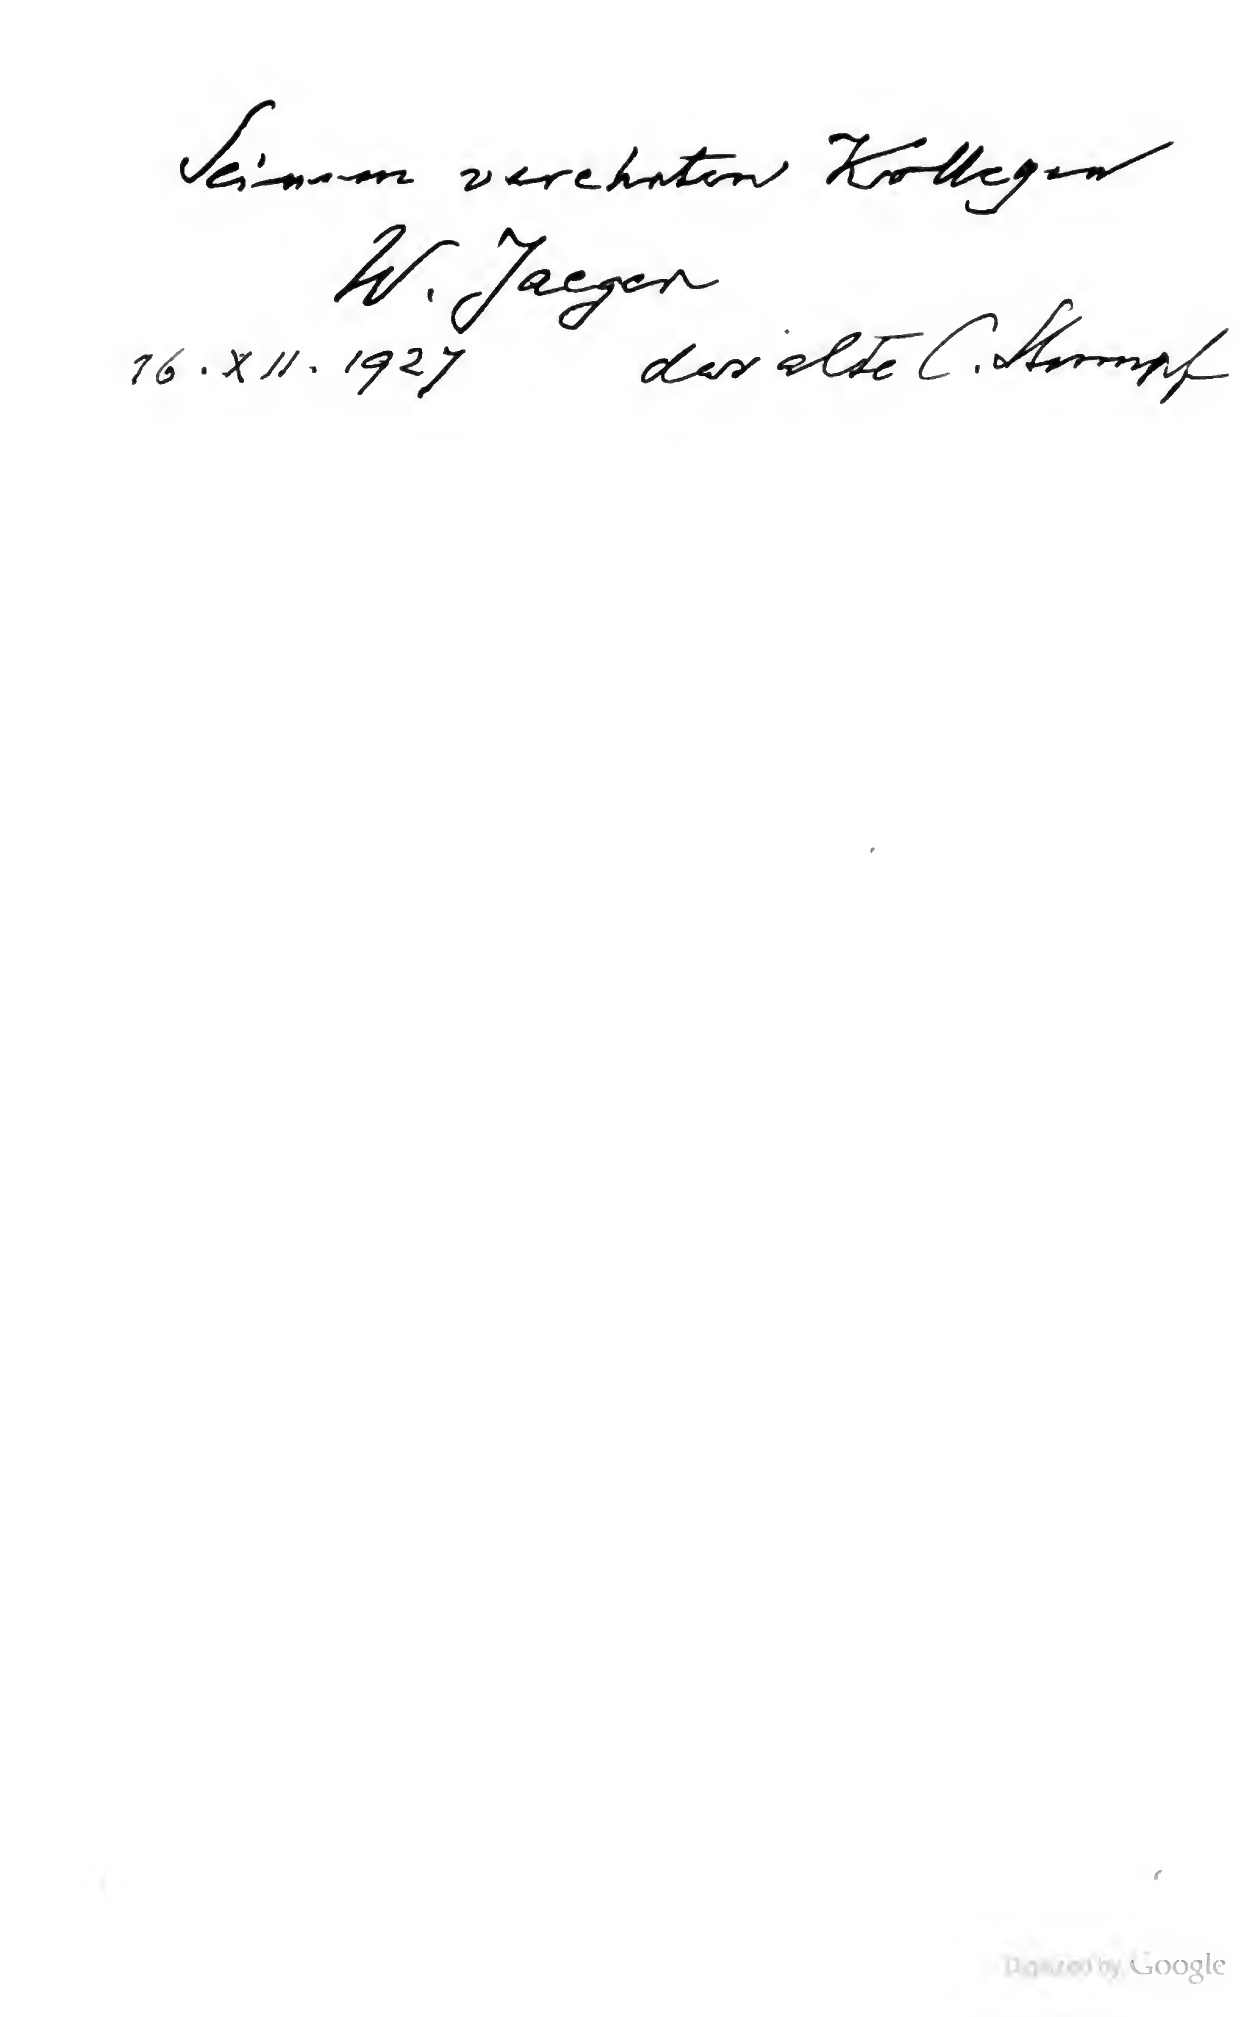 Seinem verehrten Kollegen
W. Jaeger
16. XII. 1927 der alte C. Stumpf
Digitized by Google